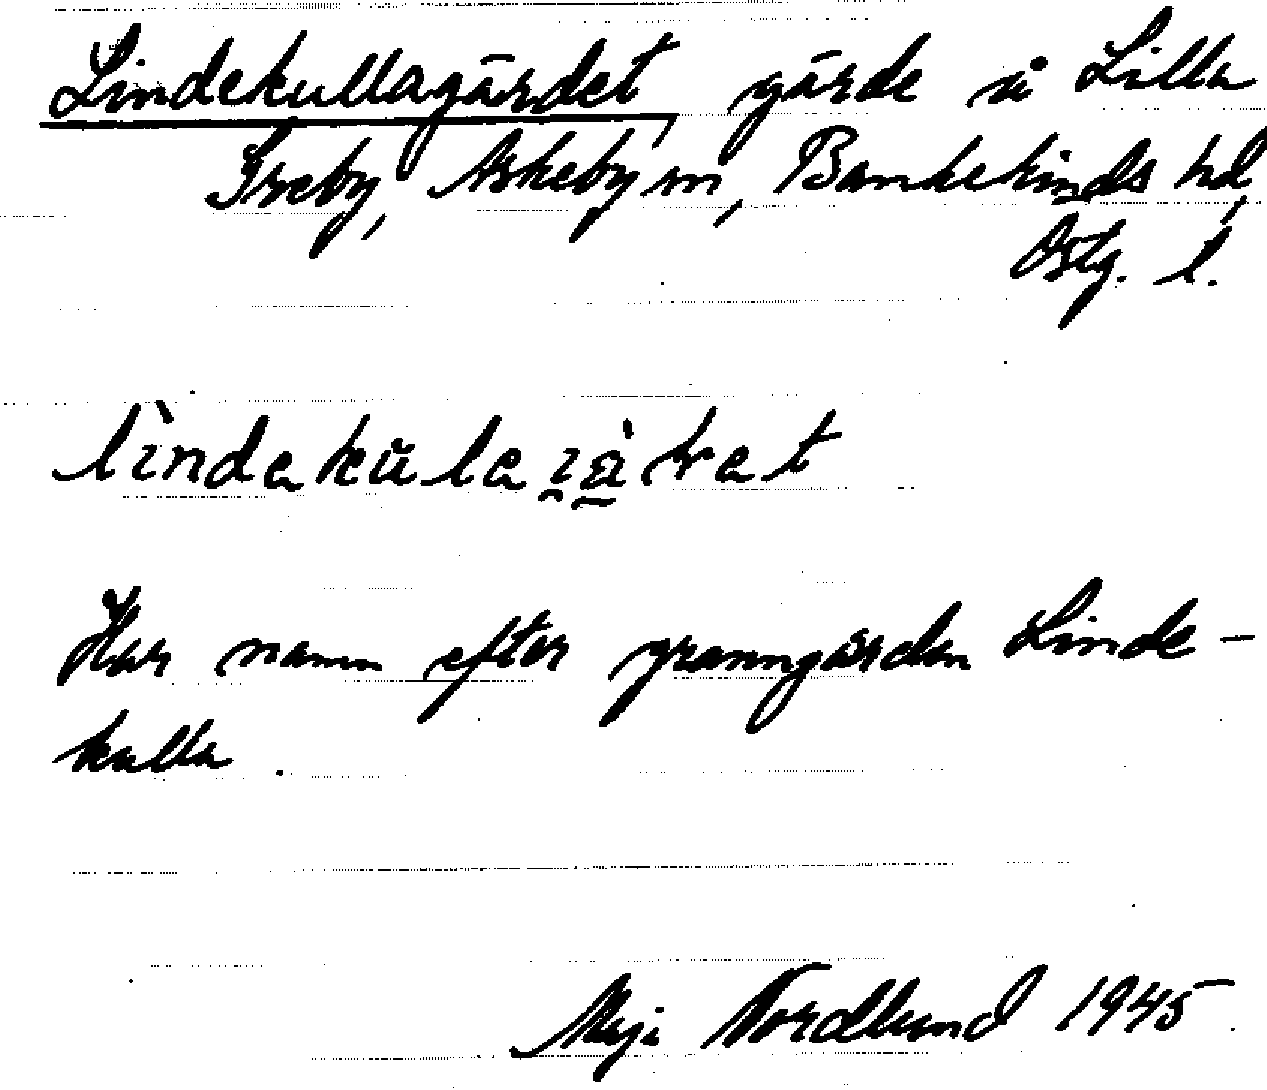 Lindekullagärdet, gärde å Lilla
Greby, Askeby sn, Bankekinds hd,
Östg. l.
Har namn efter granngården Linde-
kulla.
Maji Nordlund 1945